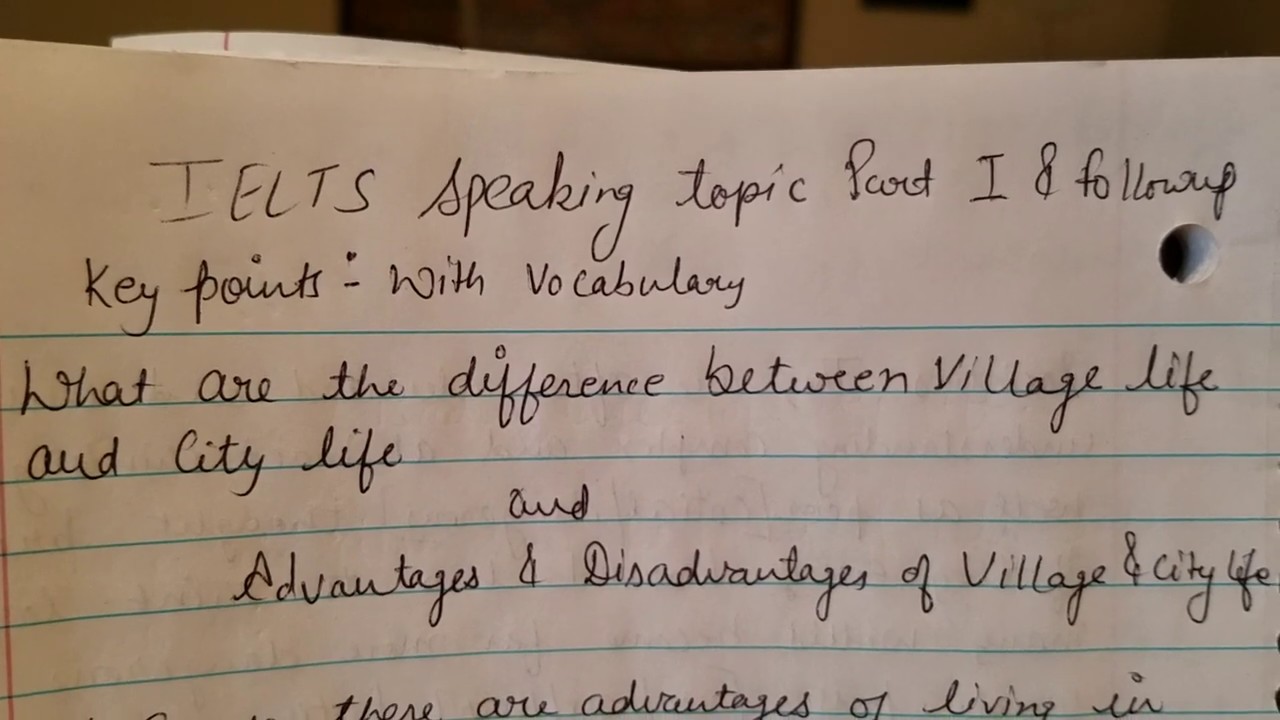 IELTS Speaking topic Part I & followup
Key points :- With Vocabulary
What are the difference between Village life
and City life
and
Advantages & Disadvantages of Village & City life
there are advantages of living in